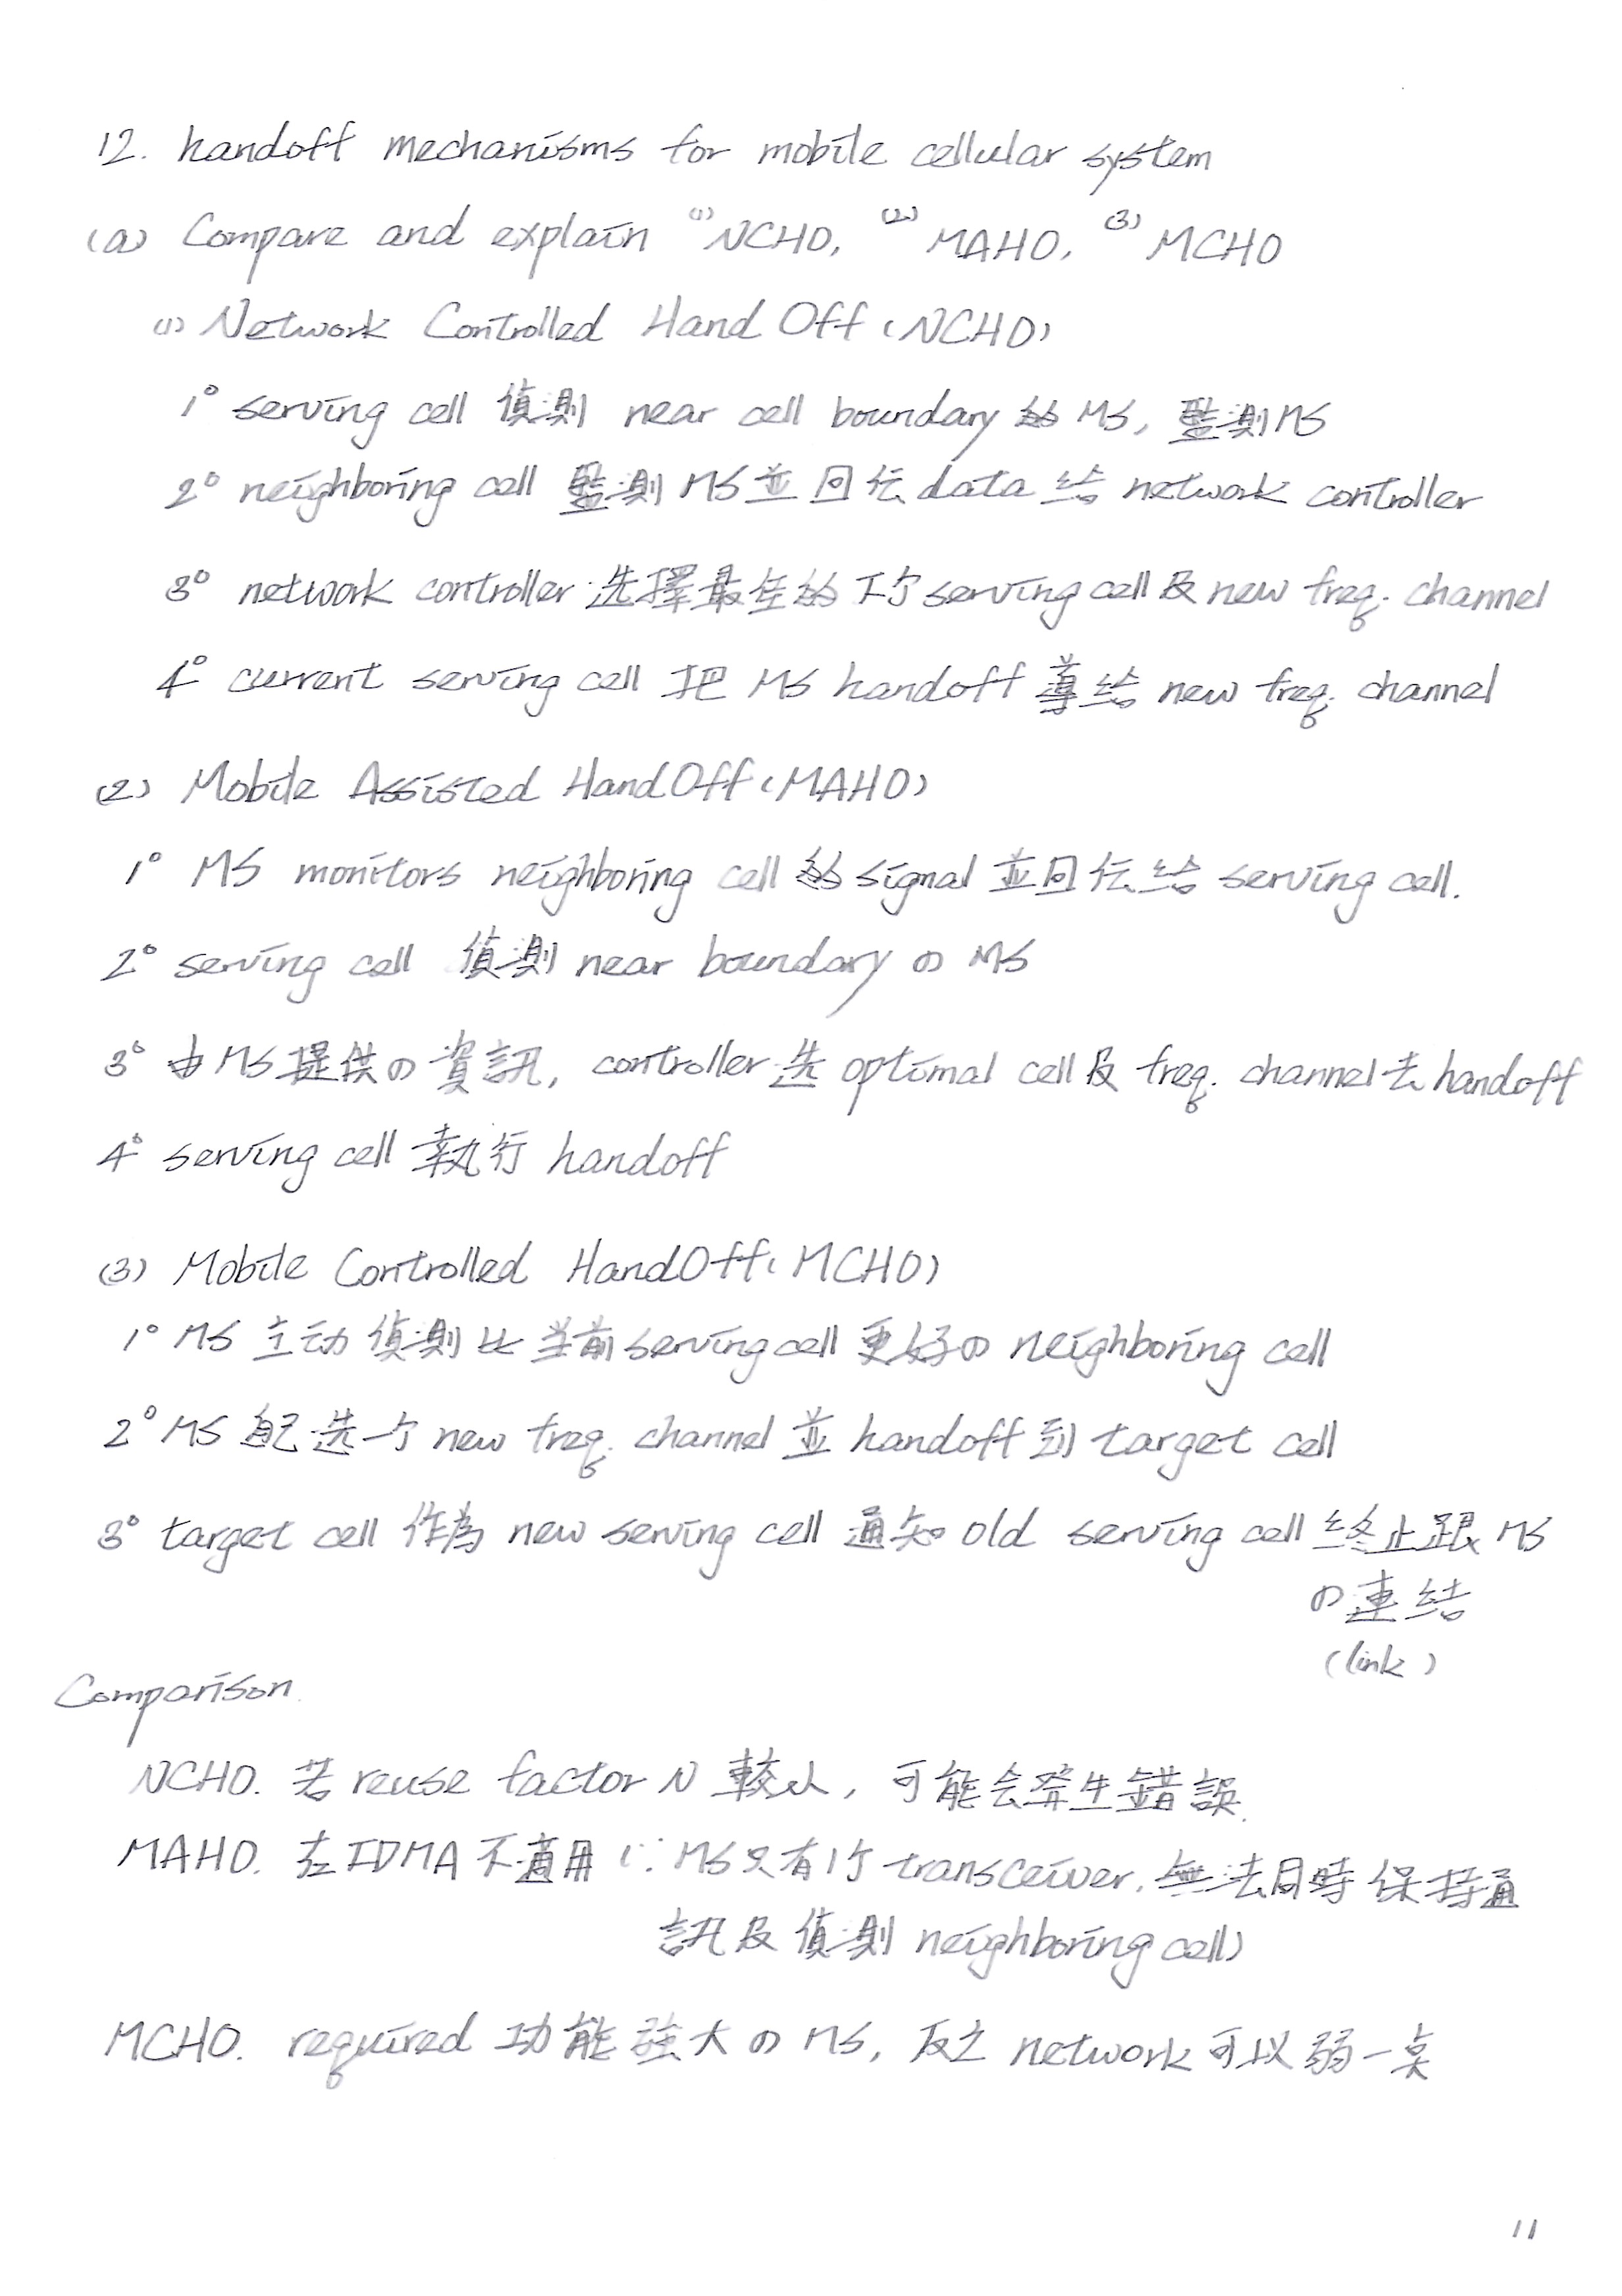 12. handoff mechanisms for mobile cellular system
(a) Compare and explain (1) NCHO, (2) MAHO, (3) MCHO
(1) Network Controlled Hand Off (NCHO)
1° serving cell 偵測 near cell boundary 的 MS, 監測MS
2° neighboring cell 監測 MS 並回伝 data 给 network controller
3° network controller 选擇最佳的下个 serving cell 及 new freq. channel
4° current serving cell 把 MS handoff 導给 new freq. channel
(2) Mobile Assisted HandOff (MAHO)
1° MS monitors neighboring cell 的 signal 並回伝给 serving cell.
2° serving cell 偵測 near boundary の MS
3° 由MS提供の資訊, controller 选 optimal cell 及 freq. channel 去 handoff
4° serving cell 執行 handoff
(3) Mobile Controlled HandOff (MCHO)
1° MS 主动偵測比当前 serving cell 更好の neighboring cell
2° MS 自己选一个 new freq. channel 並 handoff 到 target cell
3° target cell 作為 new serving cell 通知 old serving cell 终止跟 MS
の連结
(link)
Comparison.
NCHO. 若 reuse factor N 較小, 可能会発生錯誤.
MAHO. 在TDMA不適用 (∵ MS只有1个 transceiver, 無法同時保持通
訊及偵測 neighboring cell)
MCHO. required 功能強大の MS, 反之 network 可以弱一点
11